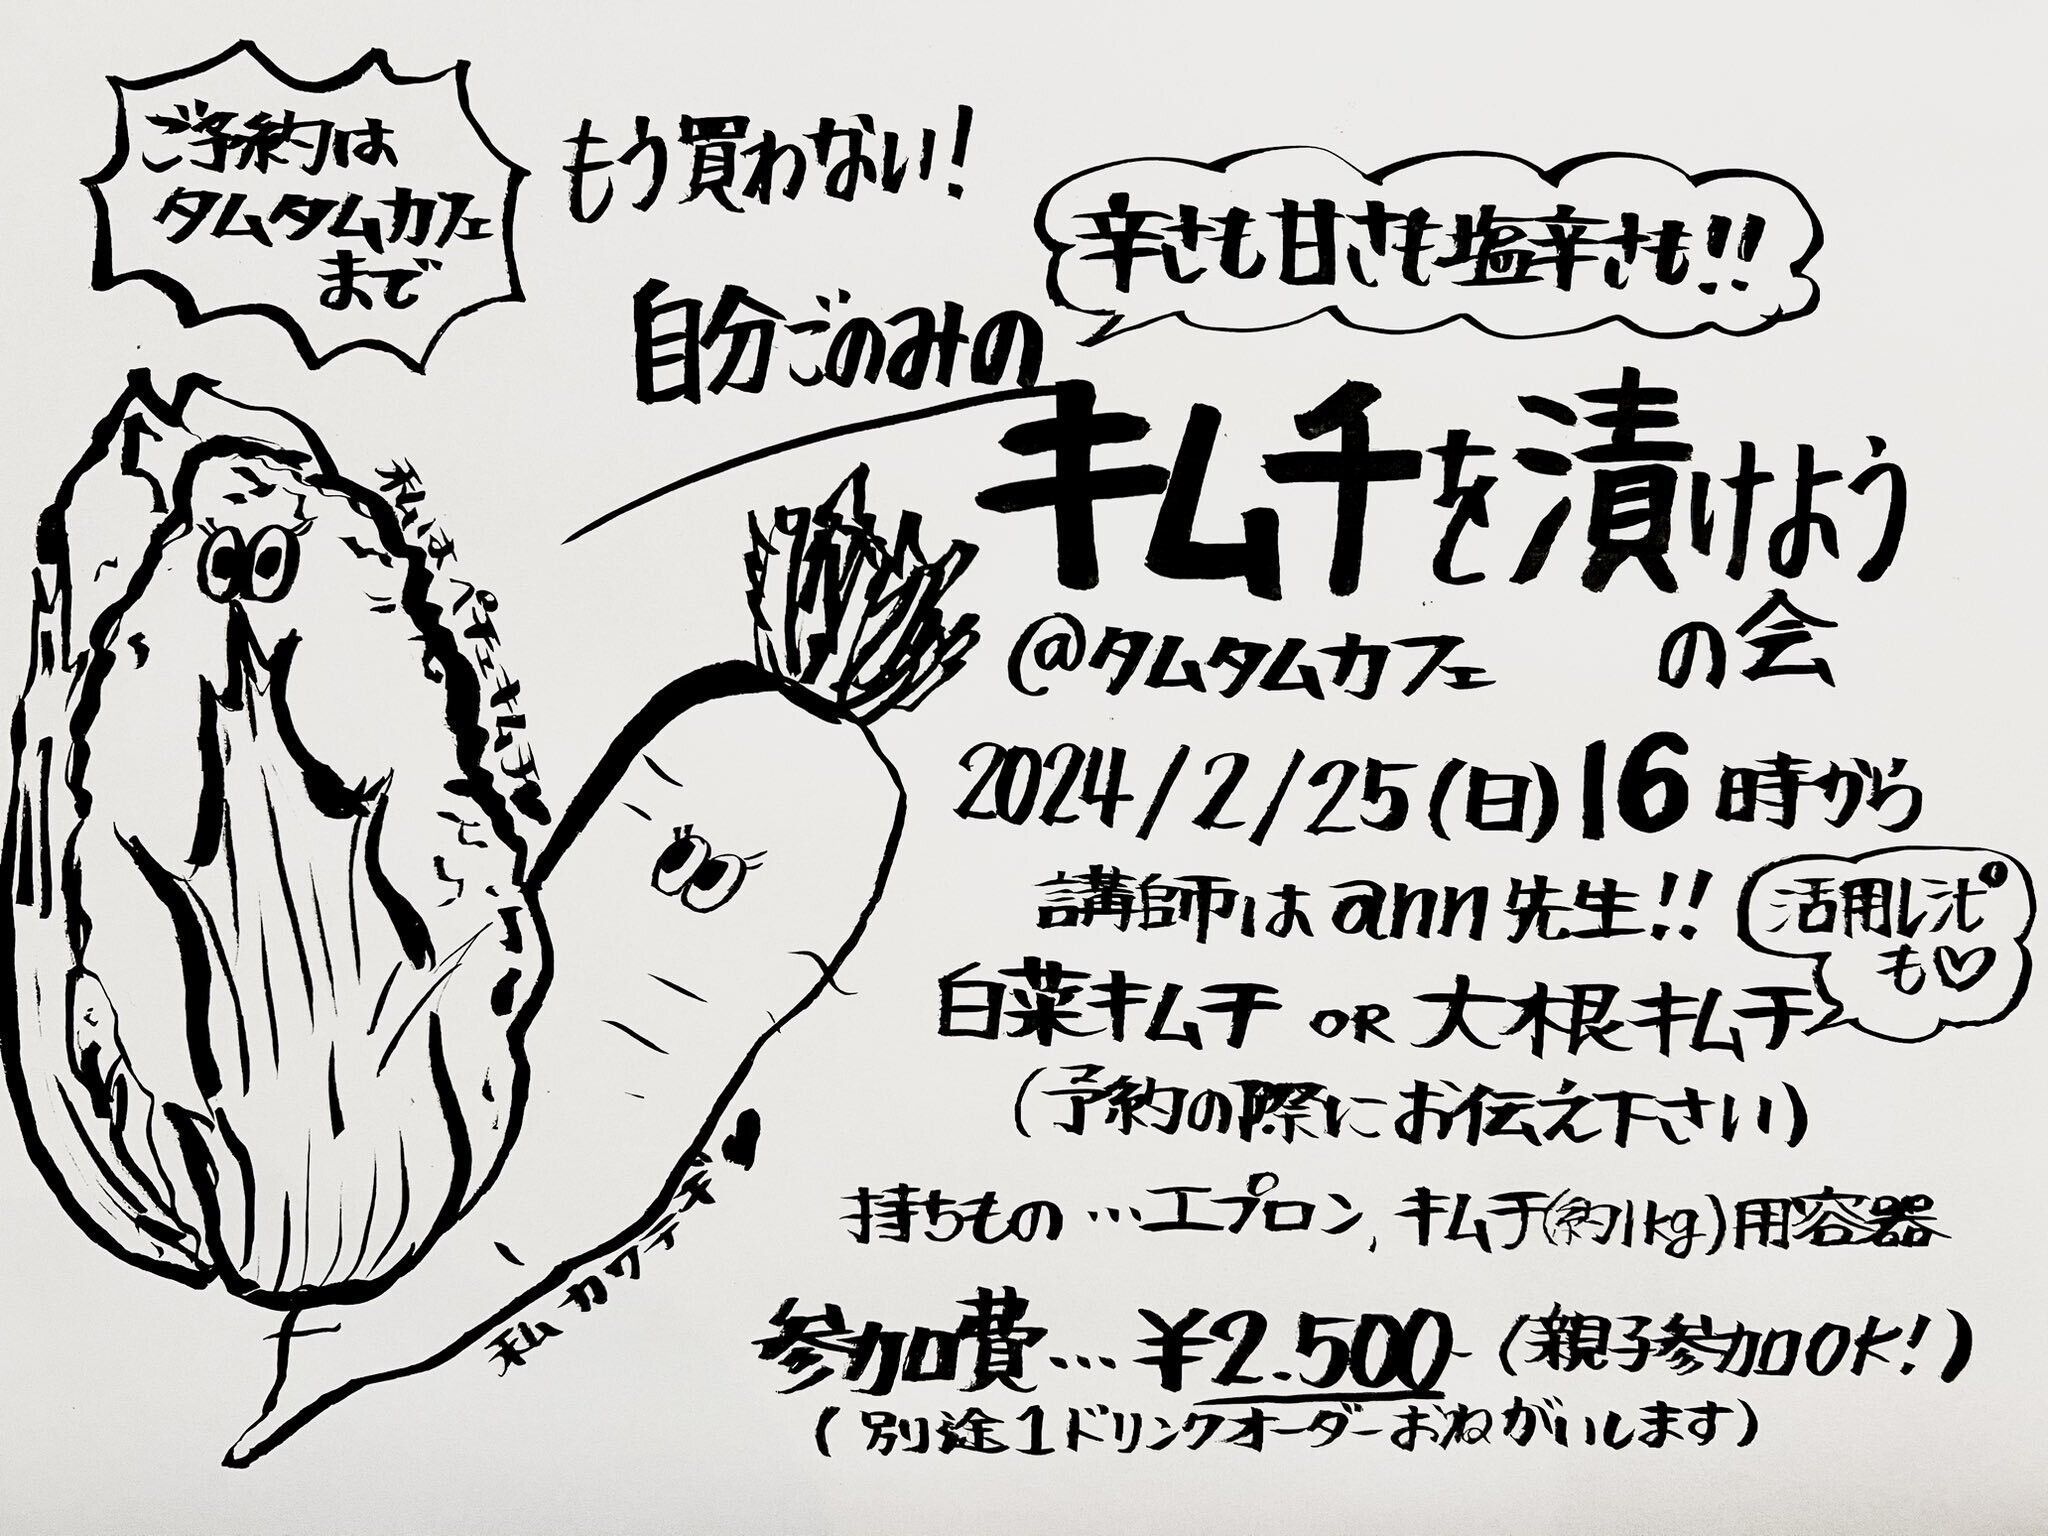 ご予約は
タムタムカフェ
まで
もう買わない！
辛さも甘さも塩辛さも!!
自分ごのみの
キムチを漬けよう
の会
@タムタムカフェ
2024/2/25(日)16時から
講師はann先生!!
活用レシピ
も♡
白菜キムチ OR 大根キムチ
(予約の際にお伝え下さい)
持ちもの…エプロン,キムチ(約1kg)用容器
参加費…¥2.500- (親子参加OK!)
(別途1ドリンクオーダーおねがいします)
私はペチュキムチ
私カクテギ